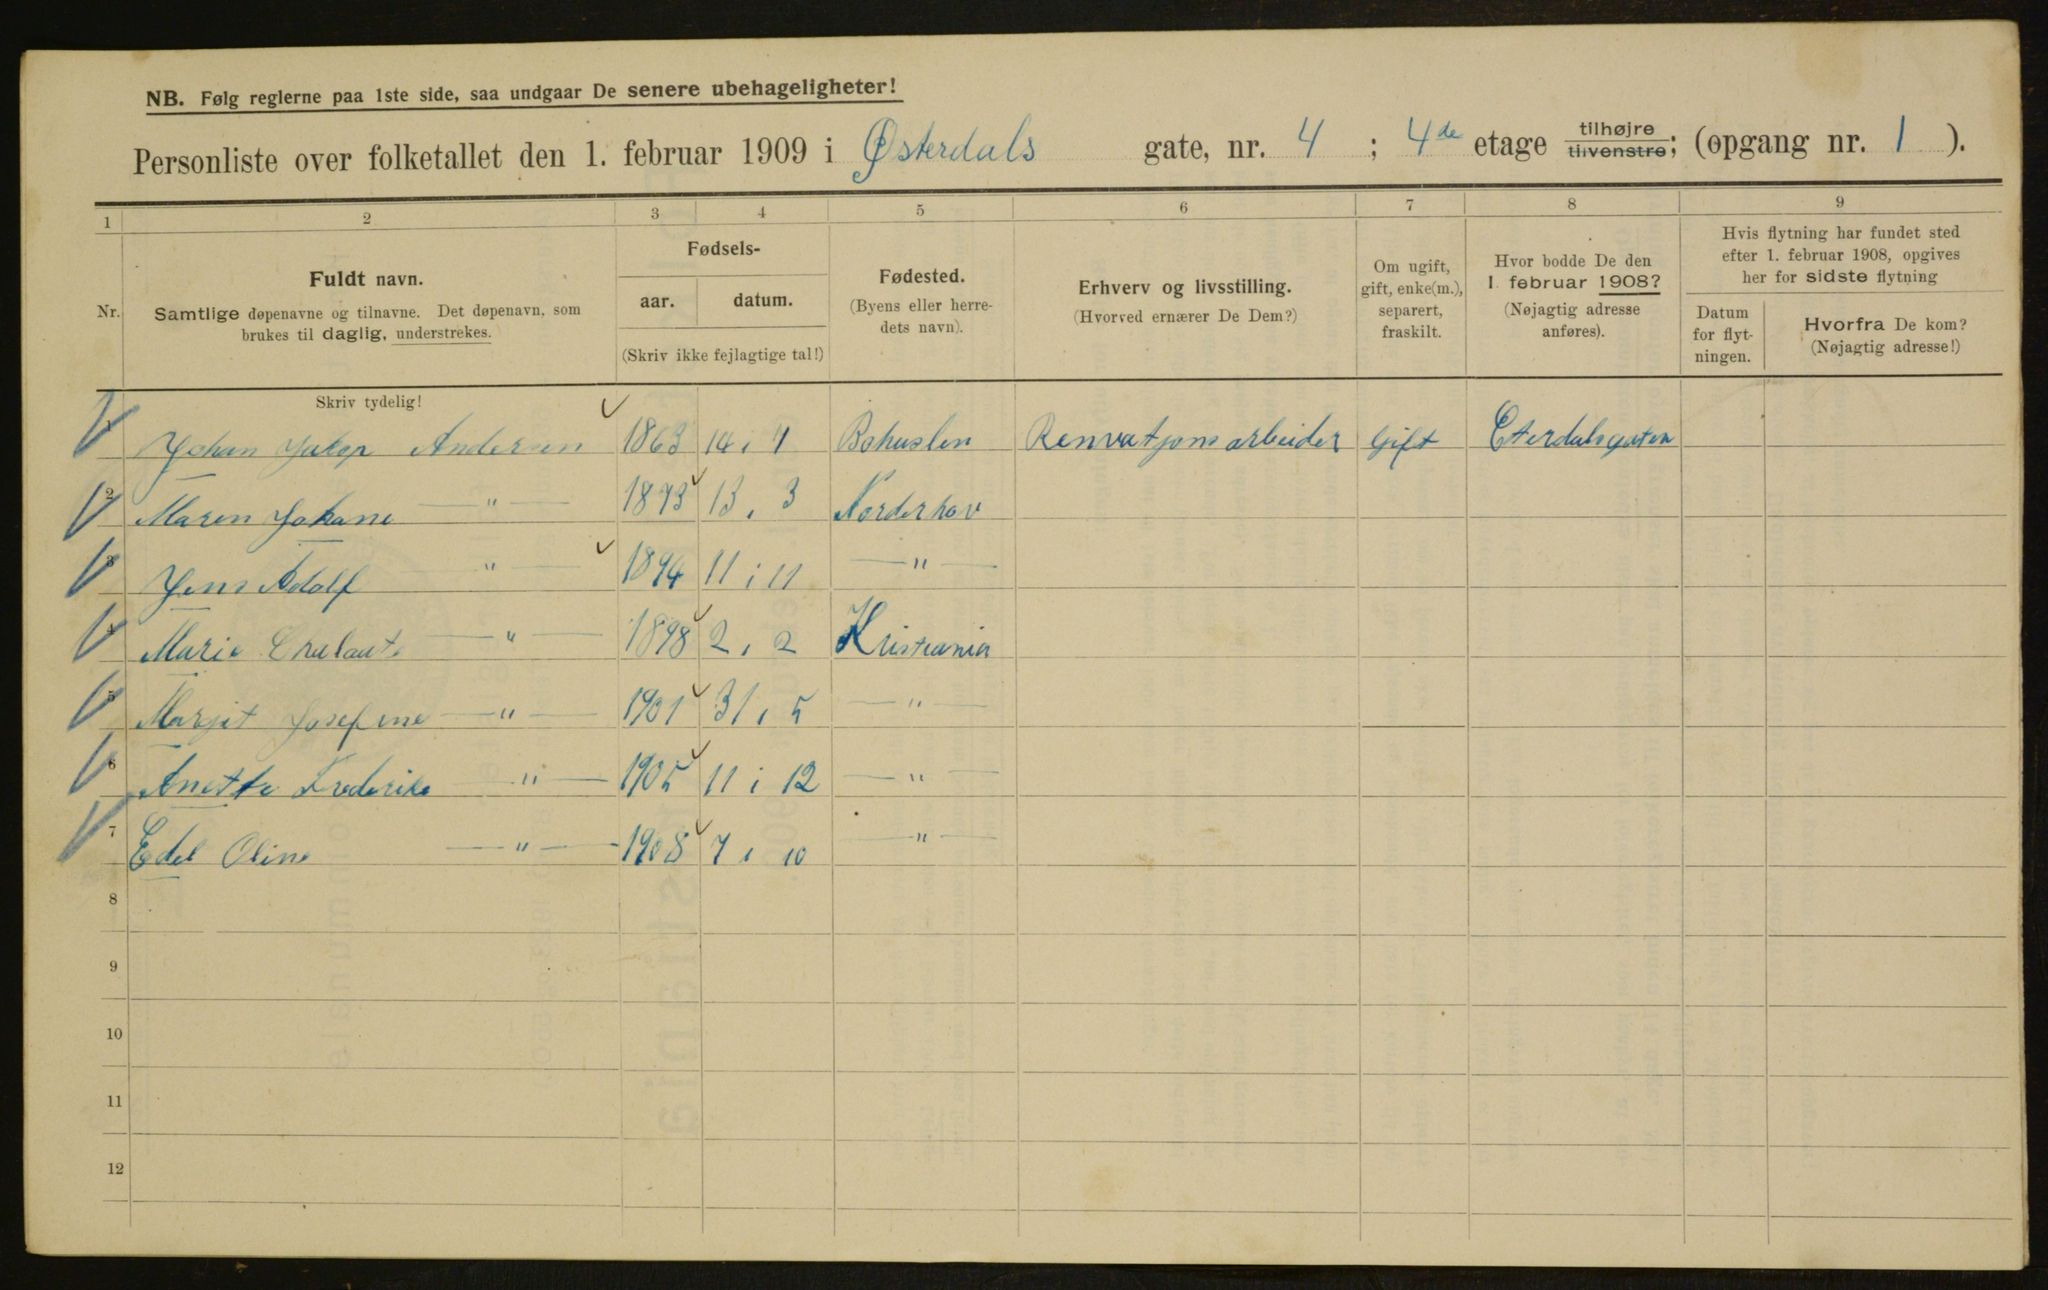 NB. Følg reglerne paa 1ste side, saa undgaar De senere ubehageligheter!
Personliste over folketallet den 1. februar 1909 i Østerdals gate, nr. 4 ; 4de etage tilhøjre tilvenstre; (opgang nr. 1 ).
1 2 3 4 5 6 7 8 9
Nr.
Fuldt navn.
Samtlige døpenavne og tilnavne. Det døpenavn, som
brukes til daglig, understrekes.
Fødsels-
aar. datum.
(Skriv ikke fejlagtige tal!)
Fødested.
(Byens eller herre-
dets navn).
Erhverv og livsstilling.
(Hvorved ernærer De Dem?)
Om ugift,
gift, enke(m.),
separert,
fraskilt.
Hvor bodde De den
1. februar 1908?
(Nøjagtig adresse
anføres).
Hvis flytning har fundet sted
efter 1. februar 1908, opgives
her for sidste flytning
Datum
for flyt-
ningen.
Hvorfra De kom?
(Nøjagtig adresse!)
Skriv tydelig!
1 Johan Jakop Andersen 1863 14 i 4 Bohuslen Renvatjons arbeider Gift Eterdalsgaten
2 Maren Johane — " — 1873 13 . 3 Norderhov
3 Jens Adolf — " — 1894 11 i 11 — " —
4 Marie — " — 1898 2 i 2 Kristiania
5 Margit Josefine — " — 1901 31 i 5 — " —
6 Anette Frederike — " — 1905 11 i 12 — " —
7 Edel Oline — " — 1908 7 i 10 — " —
8
9
10
11
12